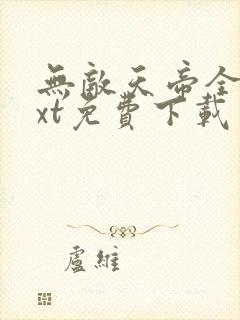 無敵天帝全
xt免費下載
盧維